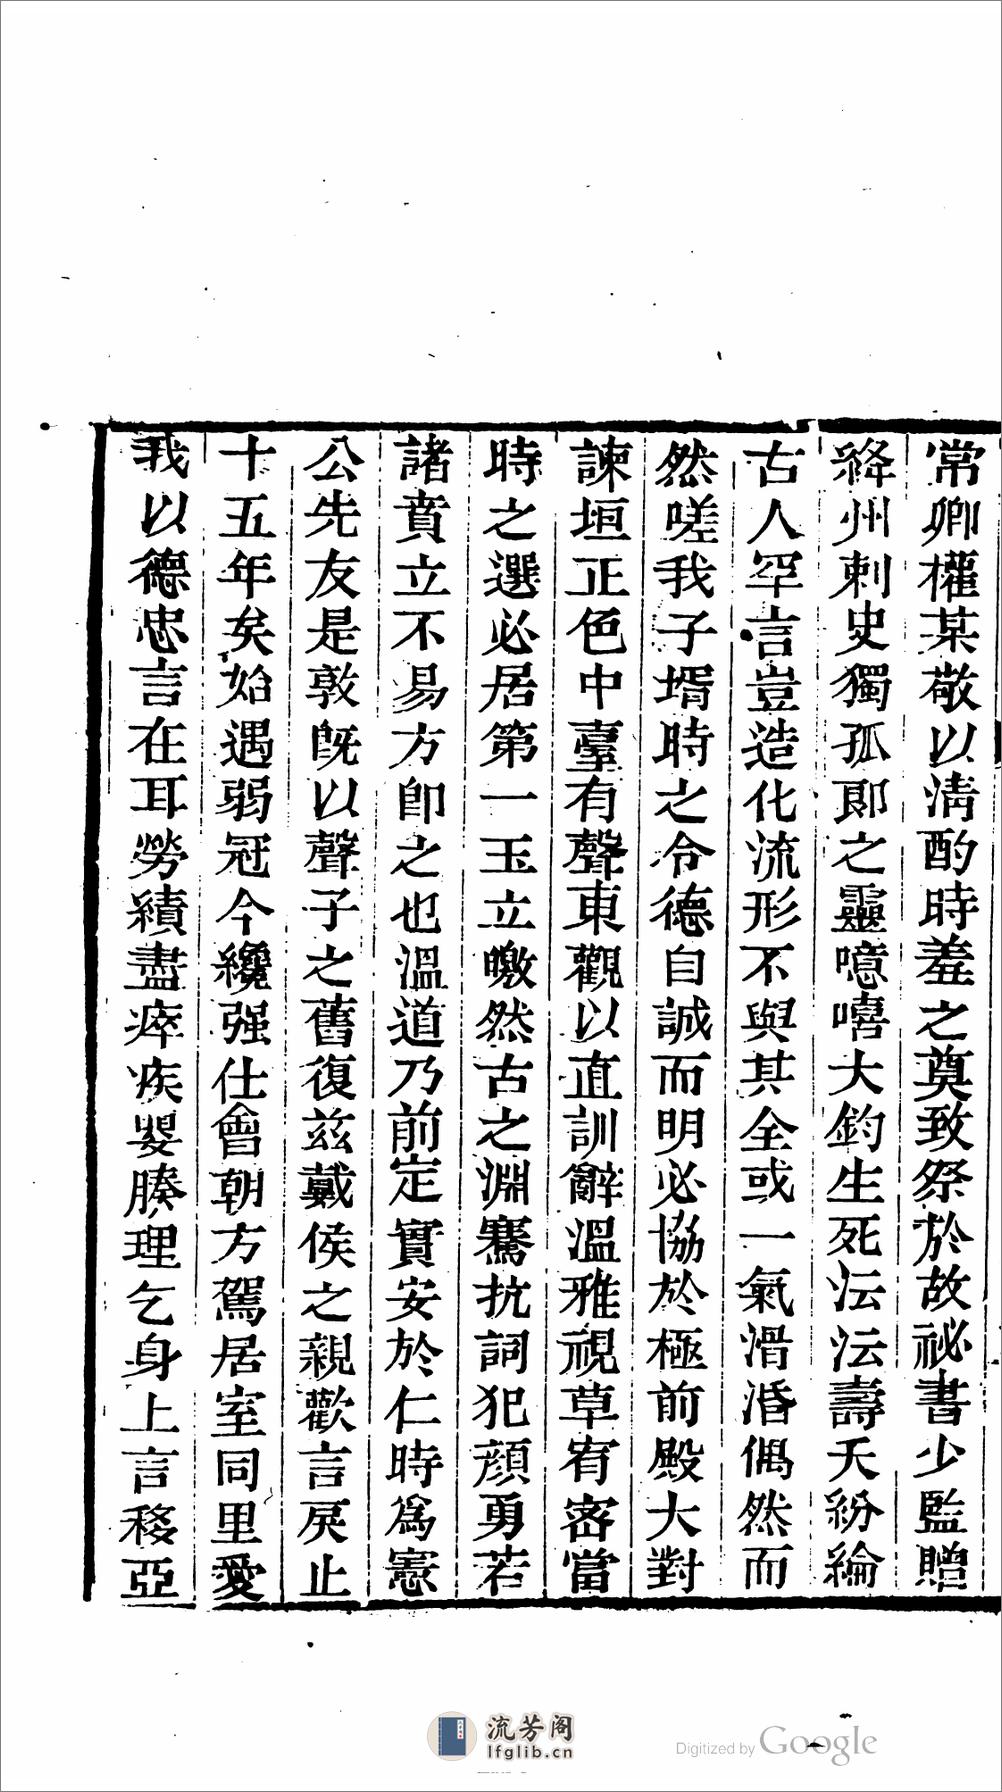 常卿權某敬以清酌時羞之奠致祭於故祕書少監贈
絳州刺史獨孤郎之靈噫嘻大鈞生死沄沄壽夭紛綸
古人罕言豈造化流形不與其全或一氣滑湣偶然而
然嗟我子壻時之令德自誠而明必協於極前殿大對
諫垣正色中臺有聲東觀以直訓辭溫雅視草宥密當
時之選必居第一玉立曒然古之淵騫抗詞犯顔勇若
諸賁立不易方卽之也溫道乃前定實安於仁時爲憲
公先友是敦旣以聲子之舊復茲戴侯之親歡言戾止
十五年矣始遇弱冠今纔强仕會朝方駕居室同里愛
我以德忠言在耳勞績盡瘁疾嬰腠理乞身上言移亞
流芳阁
lfglib.cn
Digitized by Google